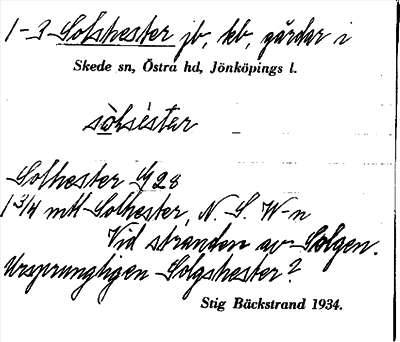 1-3 Solshester jb, kb, gårdar i
Skede sn, Östra hd, Jönköpings l.
Solhester 28
1 3/4 mtl Solhester, N. S. W-n
Vid stranden av Solgen.
Ursprungligen Solgshester?
Stig Bäckstrand 1934.